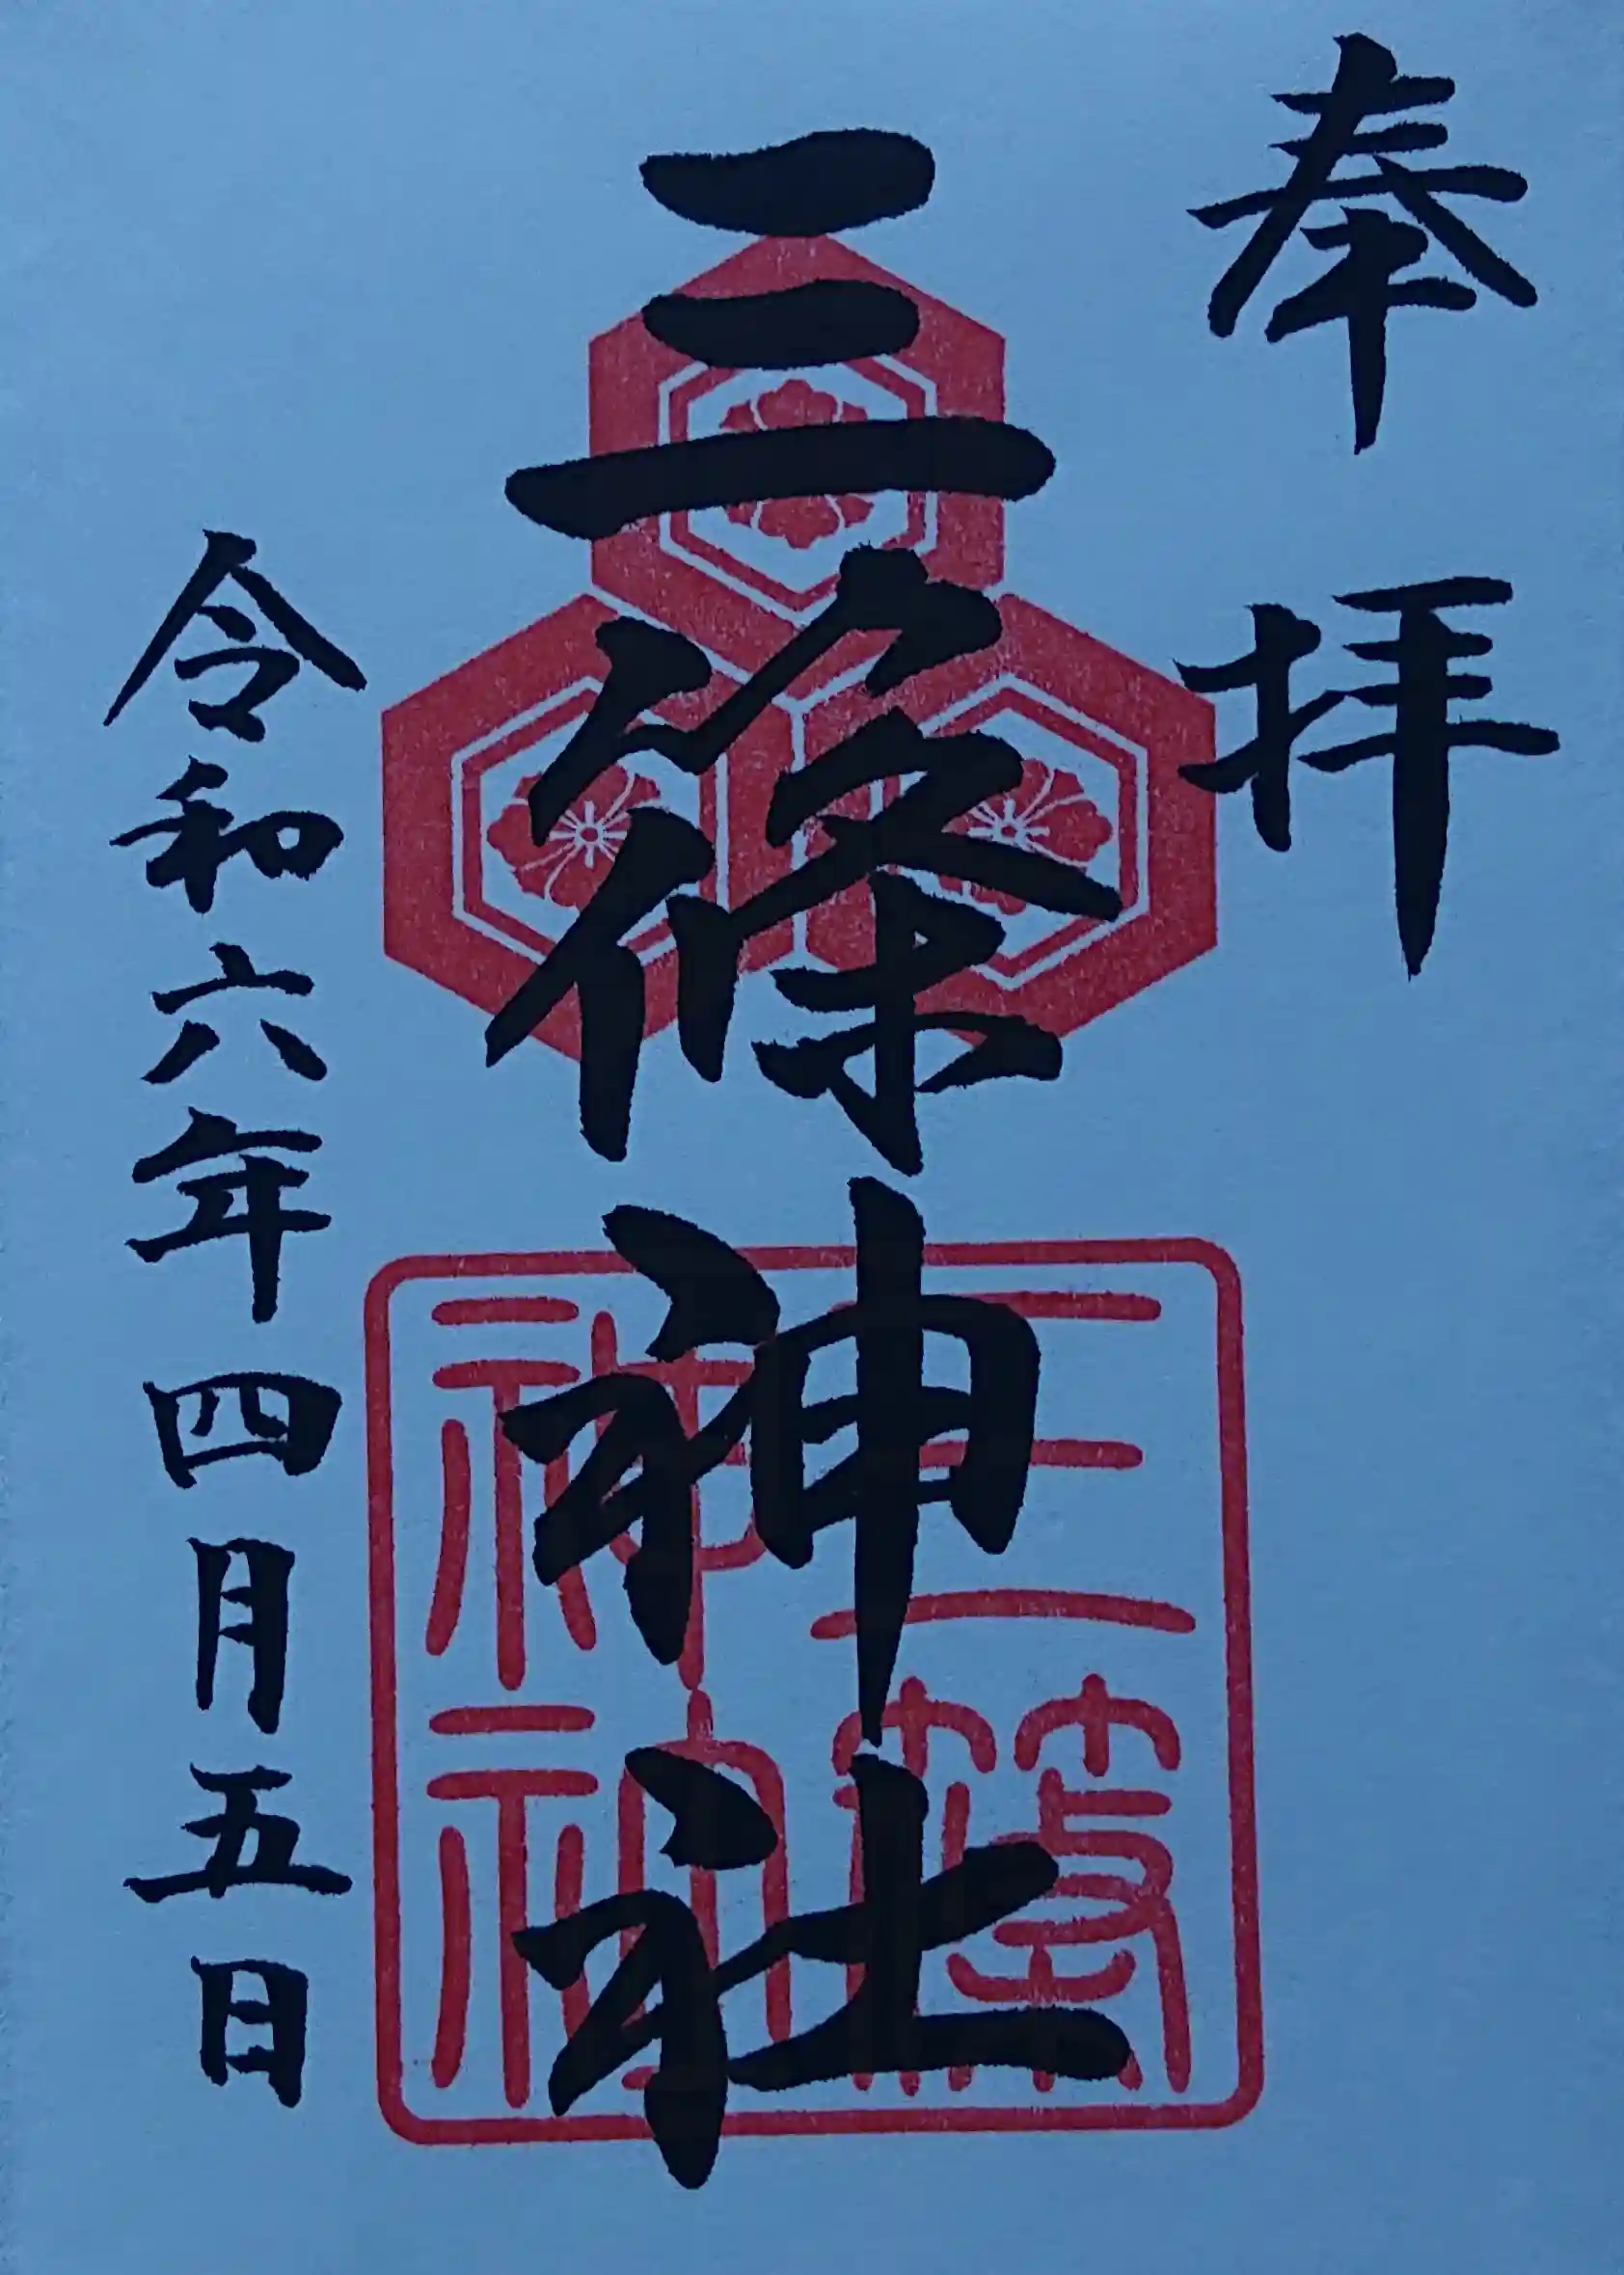 奉拝
三篠神社
令和六年四月五日
三篠
神